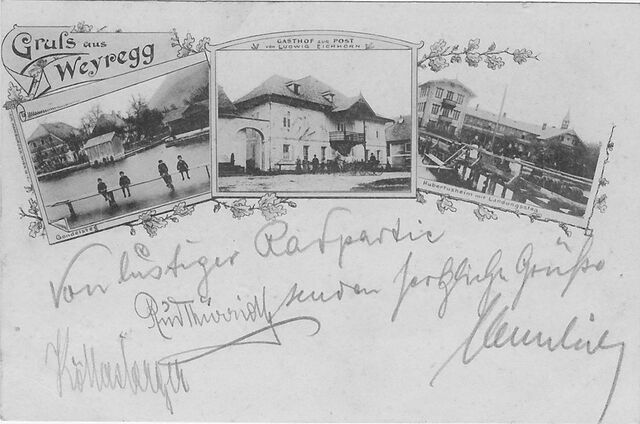 Gruß aus
Weyregg
GASTHOF ZUR POST
VON LUDWIG EICHHORN
Gondelsteg
Hubertusheim mit Landungssteg
Von lustiger Radpartie
senden herzliche Grüße